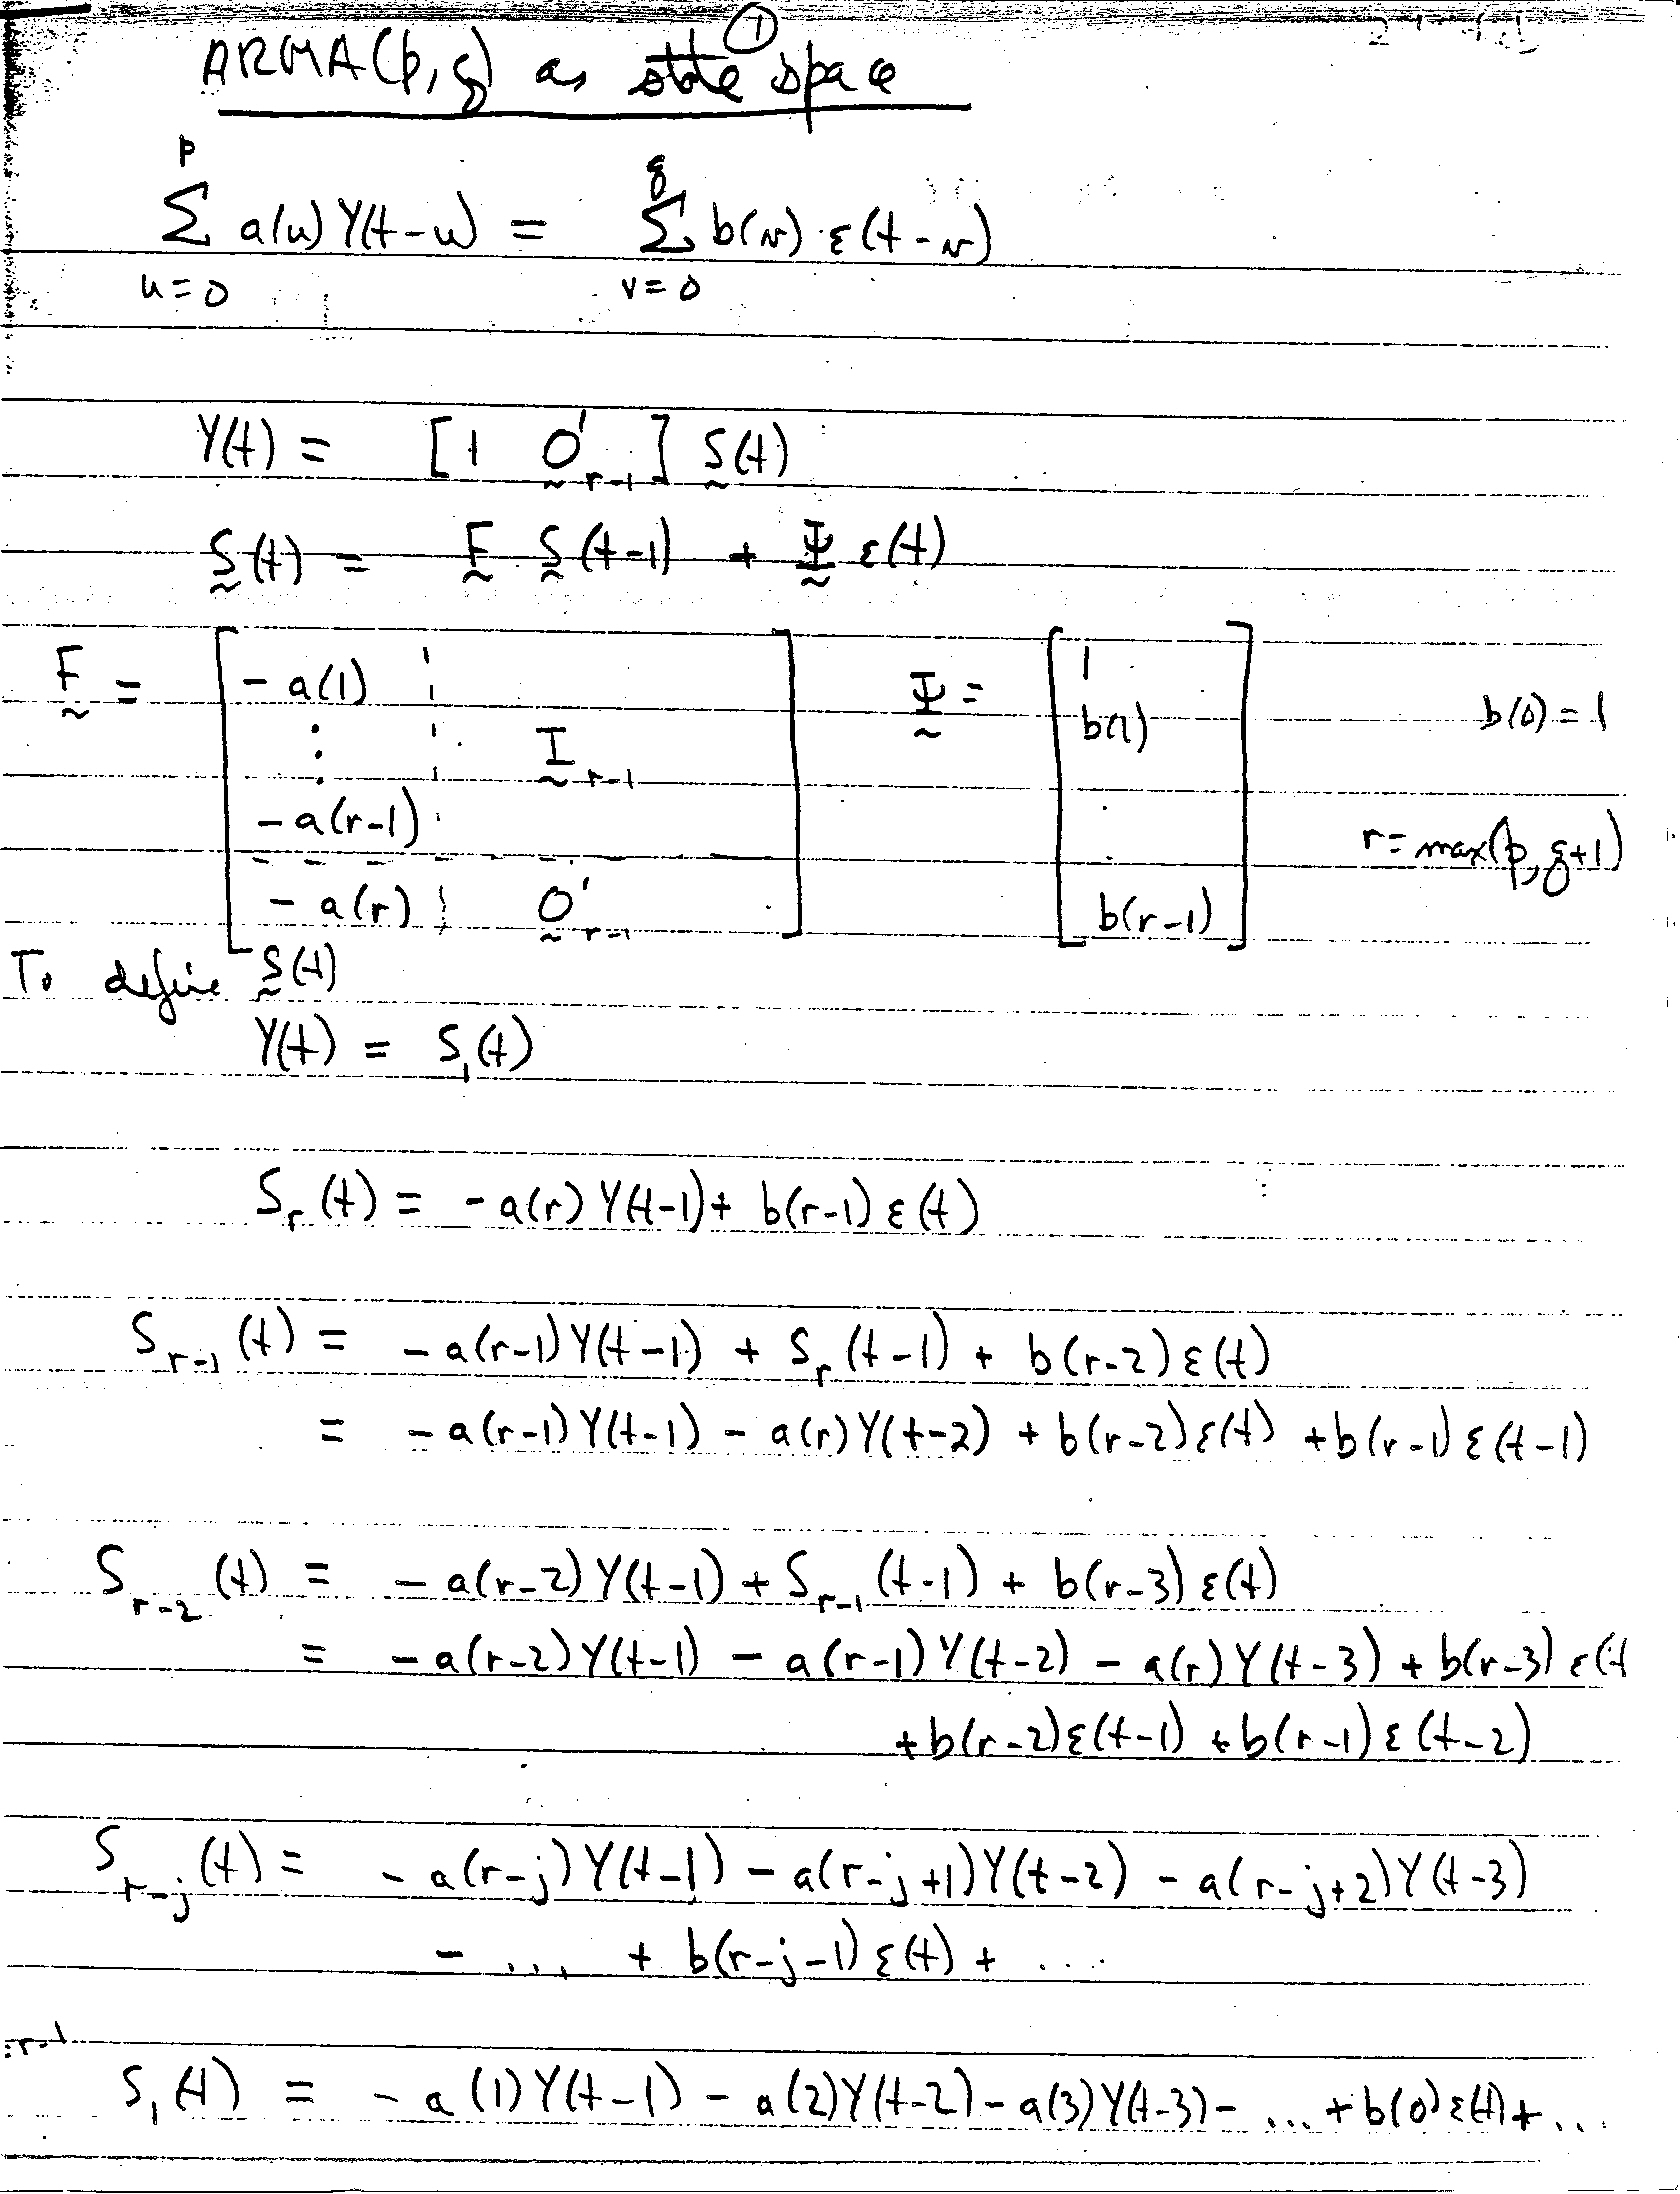 ①
ARMA(p,q) as state space
p q
Σ a(u) Y(t-u) = Σ b(v) ε(t-v)
u=0 v=0
Y(t) = [1 0'_{r-1}] S(t)
S(t) = F S(t-1) + Ψ ε(t)
F = [ -a(1) Ψ = [ 1
⋮ I_{r-1} b(1) b(0)=1
-a(r-1) . r=max(p,q+1)
-a(r) 0'_{r-1} ] b(r-1) ]
To define S(t)
Y(t) = S_1(t)
S_r(t) = -a(r) Y(t-1) + b(r-1) ε(t)
S_{r-1}(t) = -a(r-1) Y(t-1) + S_r(t-1) + b(r-2) ε(t)
= -a(r-1) Y(t-1) - a(r) Y(t-2) + b(r-2) ε(t) + b(r-1) ε(t-1)
S_{r-2}(t) = -a(r-2) Y(t-1) + S_{r-1}(t-1) + b(r-3) ε(t)
= -a(r-2) Y(t-1) - a(r-1) Y(t-2) - a(r) Y(t-3) + b(r-3) ε(t
+ b(r-2) ε(t-1) + b(r-1) ε(t-2)
S_{r-j}(t) = -a(r-j) Y(t-1) - a(r-j+1) Y(t-2) - a(r-j+2) Y(t-3)
- ... + b(r-j-1) ε(t) + ....
r-1
S_1(t) = -a(1) Y(t-1) - a(2) Y(t-2) - a(3) Y(t-3) - ... + b(0) ε(t) + ...